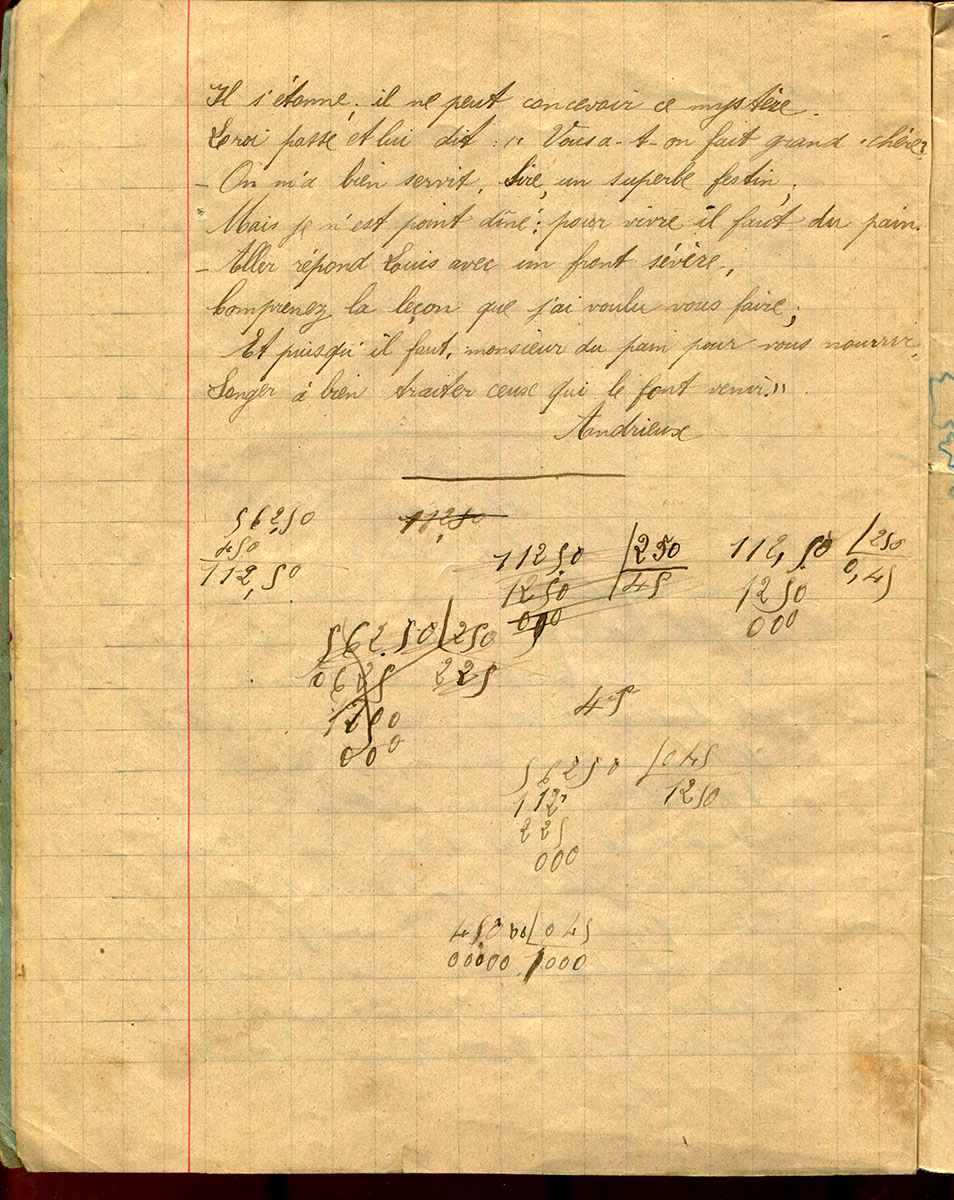 Il s'étonne, il ne peut concevoir ce mystère.
Le roi passe et lui dit : " Vous a-t-on fait grand chère?
- On m'a bien servit, Sire, un superbe festin,
Mais je n'est point dîné: pour vivre il faut du pain.
- Aller répond Louis avec un front sévère.,
Comprenez la leçon que j'ai voulu vous faire;
Et puisqu'il faut, monsieur du pain pour vous nourrir,
Songer à bien traiter ceux qui le font venir."
Andrieux
562,50
450
112,50
112,50
1125,0 250
1250 45
000
112,50 250
1250 0,45
000
562.50 250
0625 225
1250
000
45
56250 045
112 1250
225
000
450 00 045
00000 1000